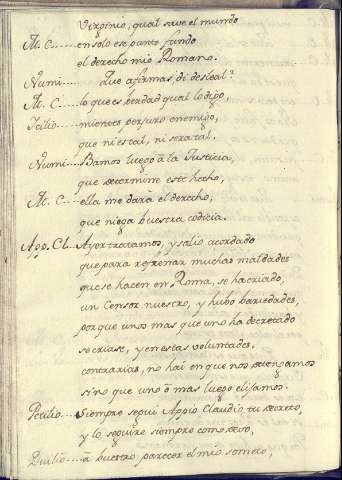 Virginio, qual save el mundo
M. C..... en solo ese punto fundo
el derecho mio Romano.
Numi..... Que afirmas di desleal?
M. C. .... lo que es berdad qual lo digo,
Icilio..... mientes perjuro enemigo,
que ni es tal, ni sera tal.
Numi..... Bamos luego à la Justicia,
que determine este hecho,
M. C..... ella me darà el derecho,
que niega buestra codicia.
App. Cl... Ayer tratamos, y salio acordado
que para refrenar muchas maldades
que se hacen en Roma, se ha criado,
un Censor nuestro, y hubo bariedades,
porque unos mas que uno ha decretado
se criase, y en estas voluntades,
contrarias, no hai en que nos detengamos
sino que uno ò mas luego elijamos.
Petilio.... Siempre segui Appio Claudio, tu decreto,
y lo seguire siempre como devo,
Duilio.... à buestro parecer el mio someto,